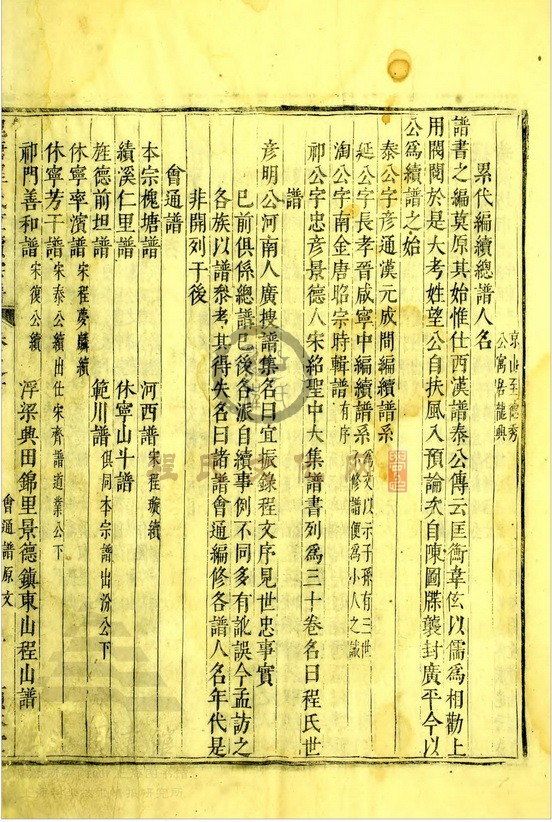 京山至德秀
公寓居龍興
累代編續總譜人名
譜書之編莫原其始惟仕西漢譜泰公傳云匡衡韋玄以儒爲相勸上
用閥閱於是大考姓望公自扶風入預論次自陳圖牒襲封廣平今以
公爲續譜之始
泰公字彥通漢元成間編續譜系
延公字長孝晉咸寧中編續譜系爲文以示子孫有三世
不修譜便爲小人之誡
淘公字南金唐昭宗時輯譜有序
祁公字忠彥景德八宋紹聖中大集譜書列爲三十卷名曰程氏世
譜
彥明公河南人廣搜譜集名曰宜振錄程文序見世忠事實
已前俱係總譜已後各派自續事例不同多有訛誤今孟訪之
各族以譜參考其得失名曰諸譜會通編修各譜人名年代是
非開列于後
會通譜
本宗槐塘譜 河西譜宋程璇續
績溪仁里譜 休寧山斗譜
旌德前坦譜 範川譜俱同本宗譜出汾公下
休寧率濱譜宋程夢麟續
休寧芳干譜宋泰公續出仕宋齊譜道業公下
祁門善和譜宋復公續 浮梁興田錦里景德鎮東山程山譜
會通譜原文